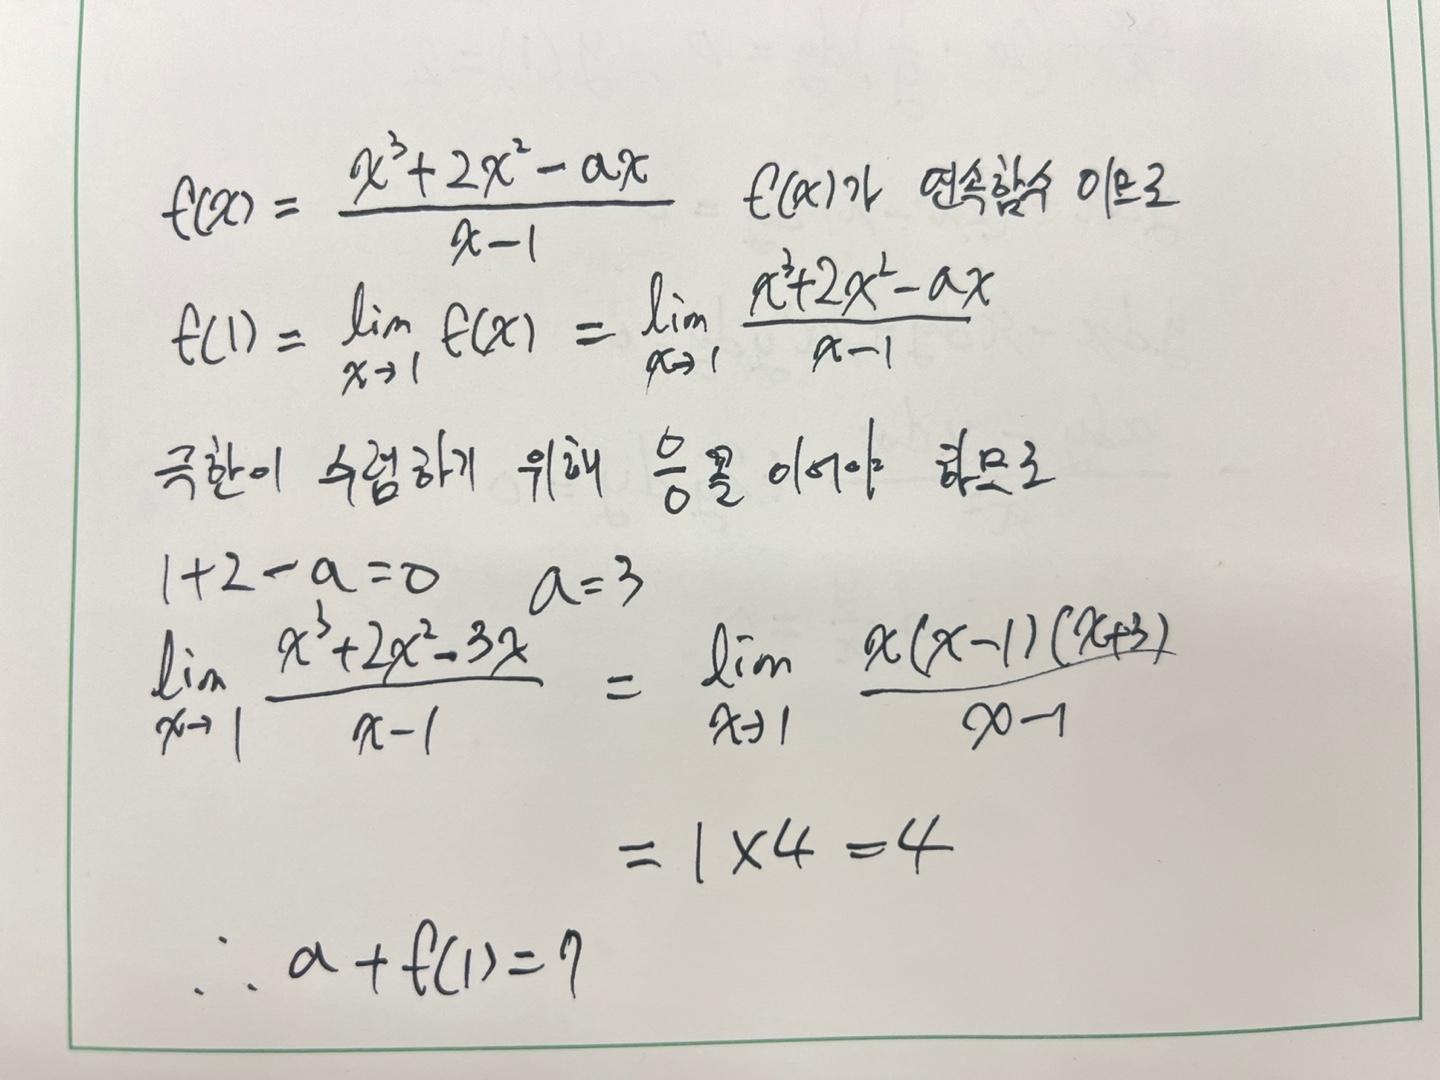 f(x) = \frac{x^3+2x^2-ax}{x-1} f(x)가 연속함수 이므로
f(1) = \lim_{x→1} f(x) = \lim_{x→1} \frac{x^3+2x^2-ax}{x-1}
극한이 수렴하기 위해 \frac{0}{0} 꼴 이어야 하므로
1+2-a=0 a=3
\lim_{x→1} \frac{x^3+2x^2-3x}{x-1} = \lim_{x→1} \frac{x(x-1)(x+3)}{x-1}
= 1×4 = 4
∴ a+f(1)=7